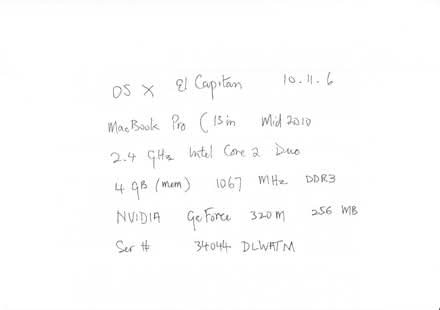 OS X El Capitan 10.11.6
MacBook Pro (13in Mid 2010
2.4 GHz Intel Core 2 Duo
4 GB (mem) 1067 MHz DDR3
NVIDIA GeForce 320M 256 MB
Ser # 34044 DLWATM